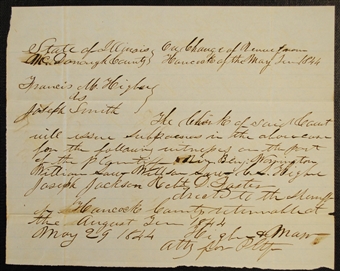 State of Illinois } On Change of Venue from
McDonough County } Hancock of the May Term 1844
Francis M. Higbee
vs
Joseph Smith
The Clerk of said Court
will issue Subpoenas in the above case
for the following witnesses on the part
of the Plaintiff
William Law Wilson Law C. L. Higbee
Joseph Jackson Robt D. Foster
directed to the Sheriff
of Hancock County returnable at
the August Term 1844
May 29 1844
Atty for Plff